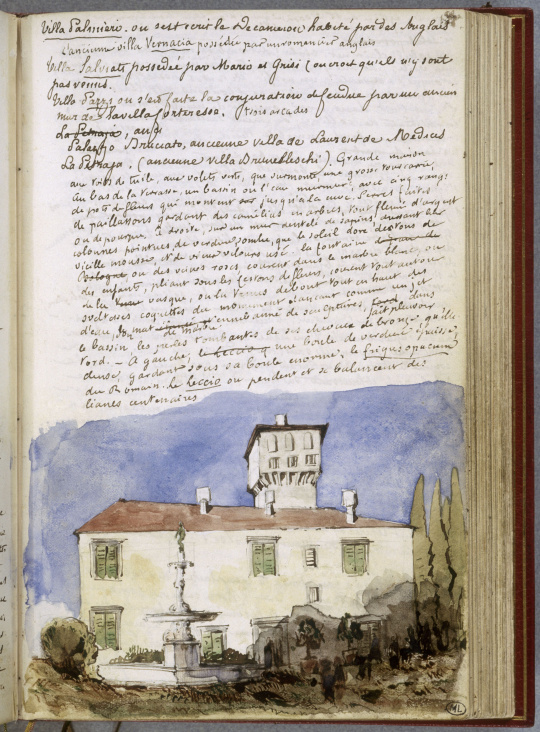 Villa Palmieri. ou s'est écrit le Decameron habité par des Anglais
L'ancienne villa Vernacia possédée par un romancier anglais
Villa Salviati possédée par Mario et Grisi (on croit qu'ils n'y sont
pas venus.
Villa Pazzi ou s'est faite la conjuration défendue par un ancien
mur de la villa forteresse. trois arcades
La Petraja, aussi
Palazzo Bruciato, ancienne villa de Laurent de Medicis
La Petraja. (ancienne villa Brunelleschi). Grande maison
aux toits de tuile, aux volets verts, que surmonte une grosse tour carrée,
au bas de la terrasse, un bassin où l'eau murmure, avec cinq rangs
de pots de fleurs qui montent jusqu'à la cuve. Serres faites
de paillassons gardant des camélias en arbres, tout fleuri d'argent
ou de pourpre. à droite, sur un mur dentelé de sapins, dressant les
colonnes pointues, de verdure sombre, que le soleil dore des tons de
vieille mousse, et de vieux velours usé: la fontaine de Jean de
Bologne ou des vieux roses, courent dans le marbre blanc, où
des enfants, pliant sous les festons de fleurs, jouent tout autour
de la vasque, où la Venus debout tout en haut des
sveltesses coquettes du monument élançant comme un jet
d'eau, son mat de marbre enrubanné de sculptures, fait pleuvoir dans
le bassin les perles tombantes de ses cheveux de bronze, qu'elle
tord. – A gauche, le leccio une boule de verdure épaisse,
dense, gardant sous sa boule énorme, le frigus opacum
du Romain. le leccio ou pendent et se balancent des
lianes centenaires
ML